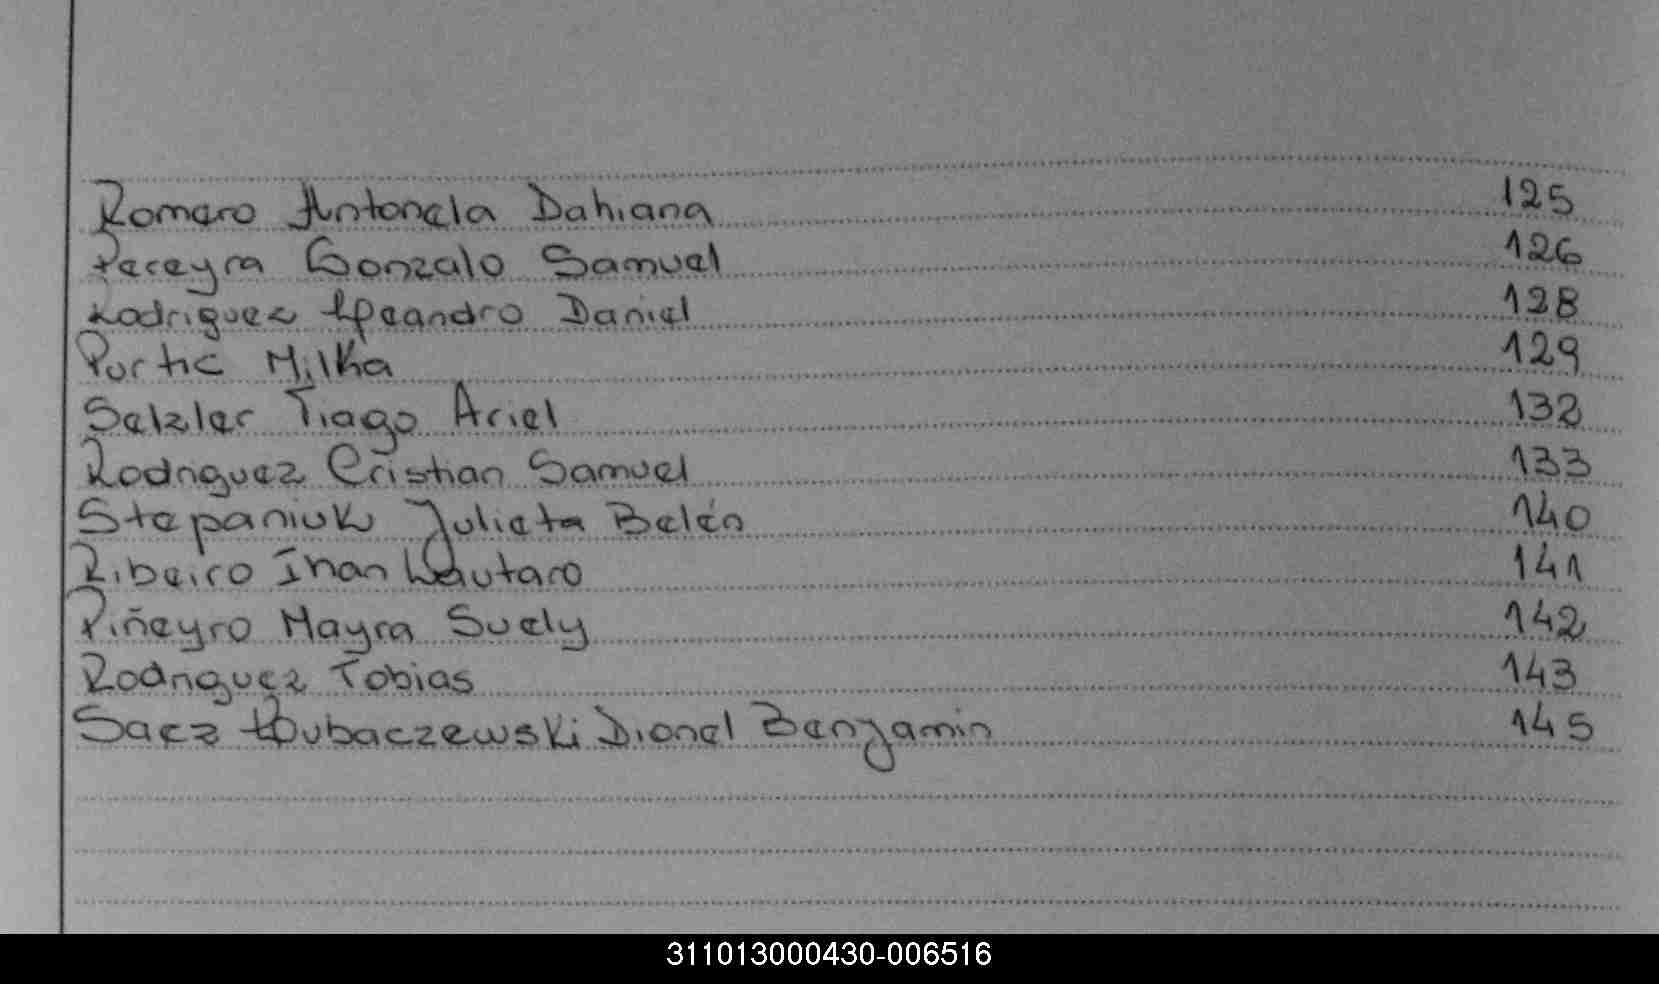 Romero Antonela Dahiana 125
Pereyra Gonzalo Samuel 126
Rodriguez Leandro Daniel 128
Portic Milka 129
Selzler Tiago Ariel 132
Rodriguez Cristian Samuel 133
Stepaniuk Julieta Belén 140
Ribeiro Inan Lautaro 141
Piñeyro Mayra Suely 142
Rodriguez Tobias 143
Saez Dubaczewski Dionel Benjamin 145
311013000430-006516